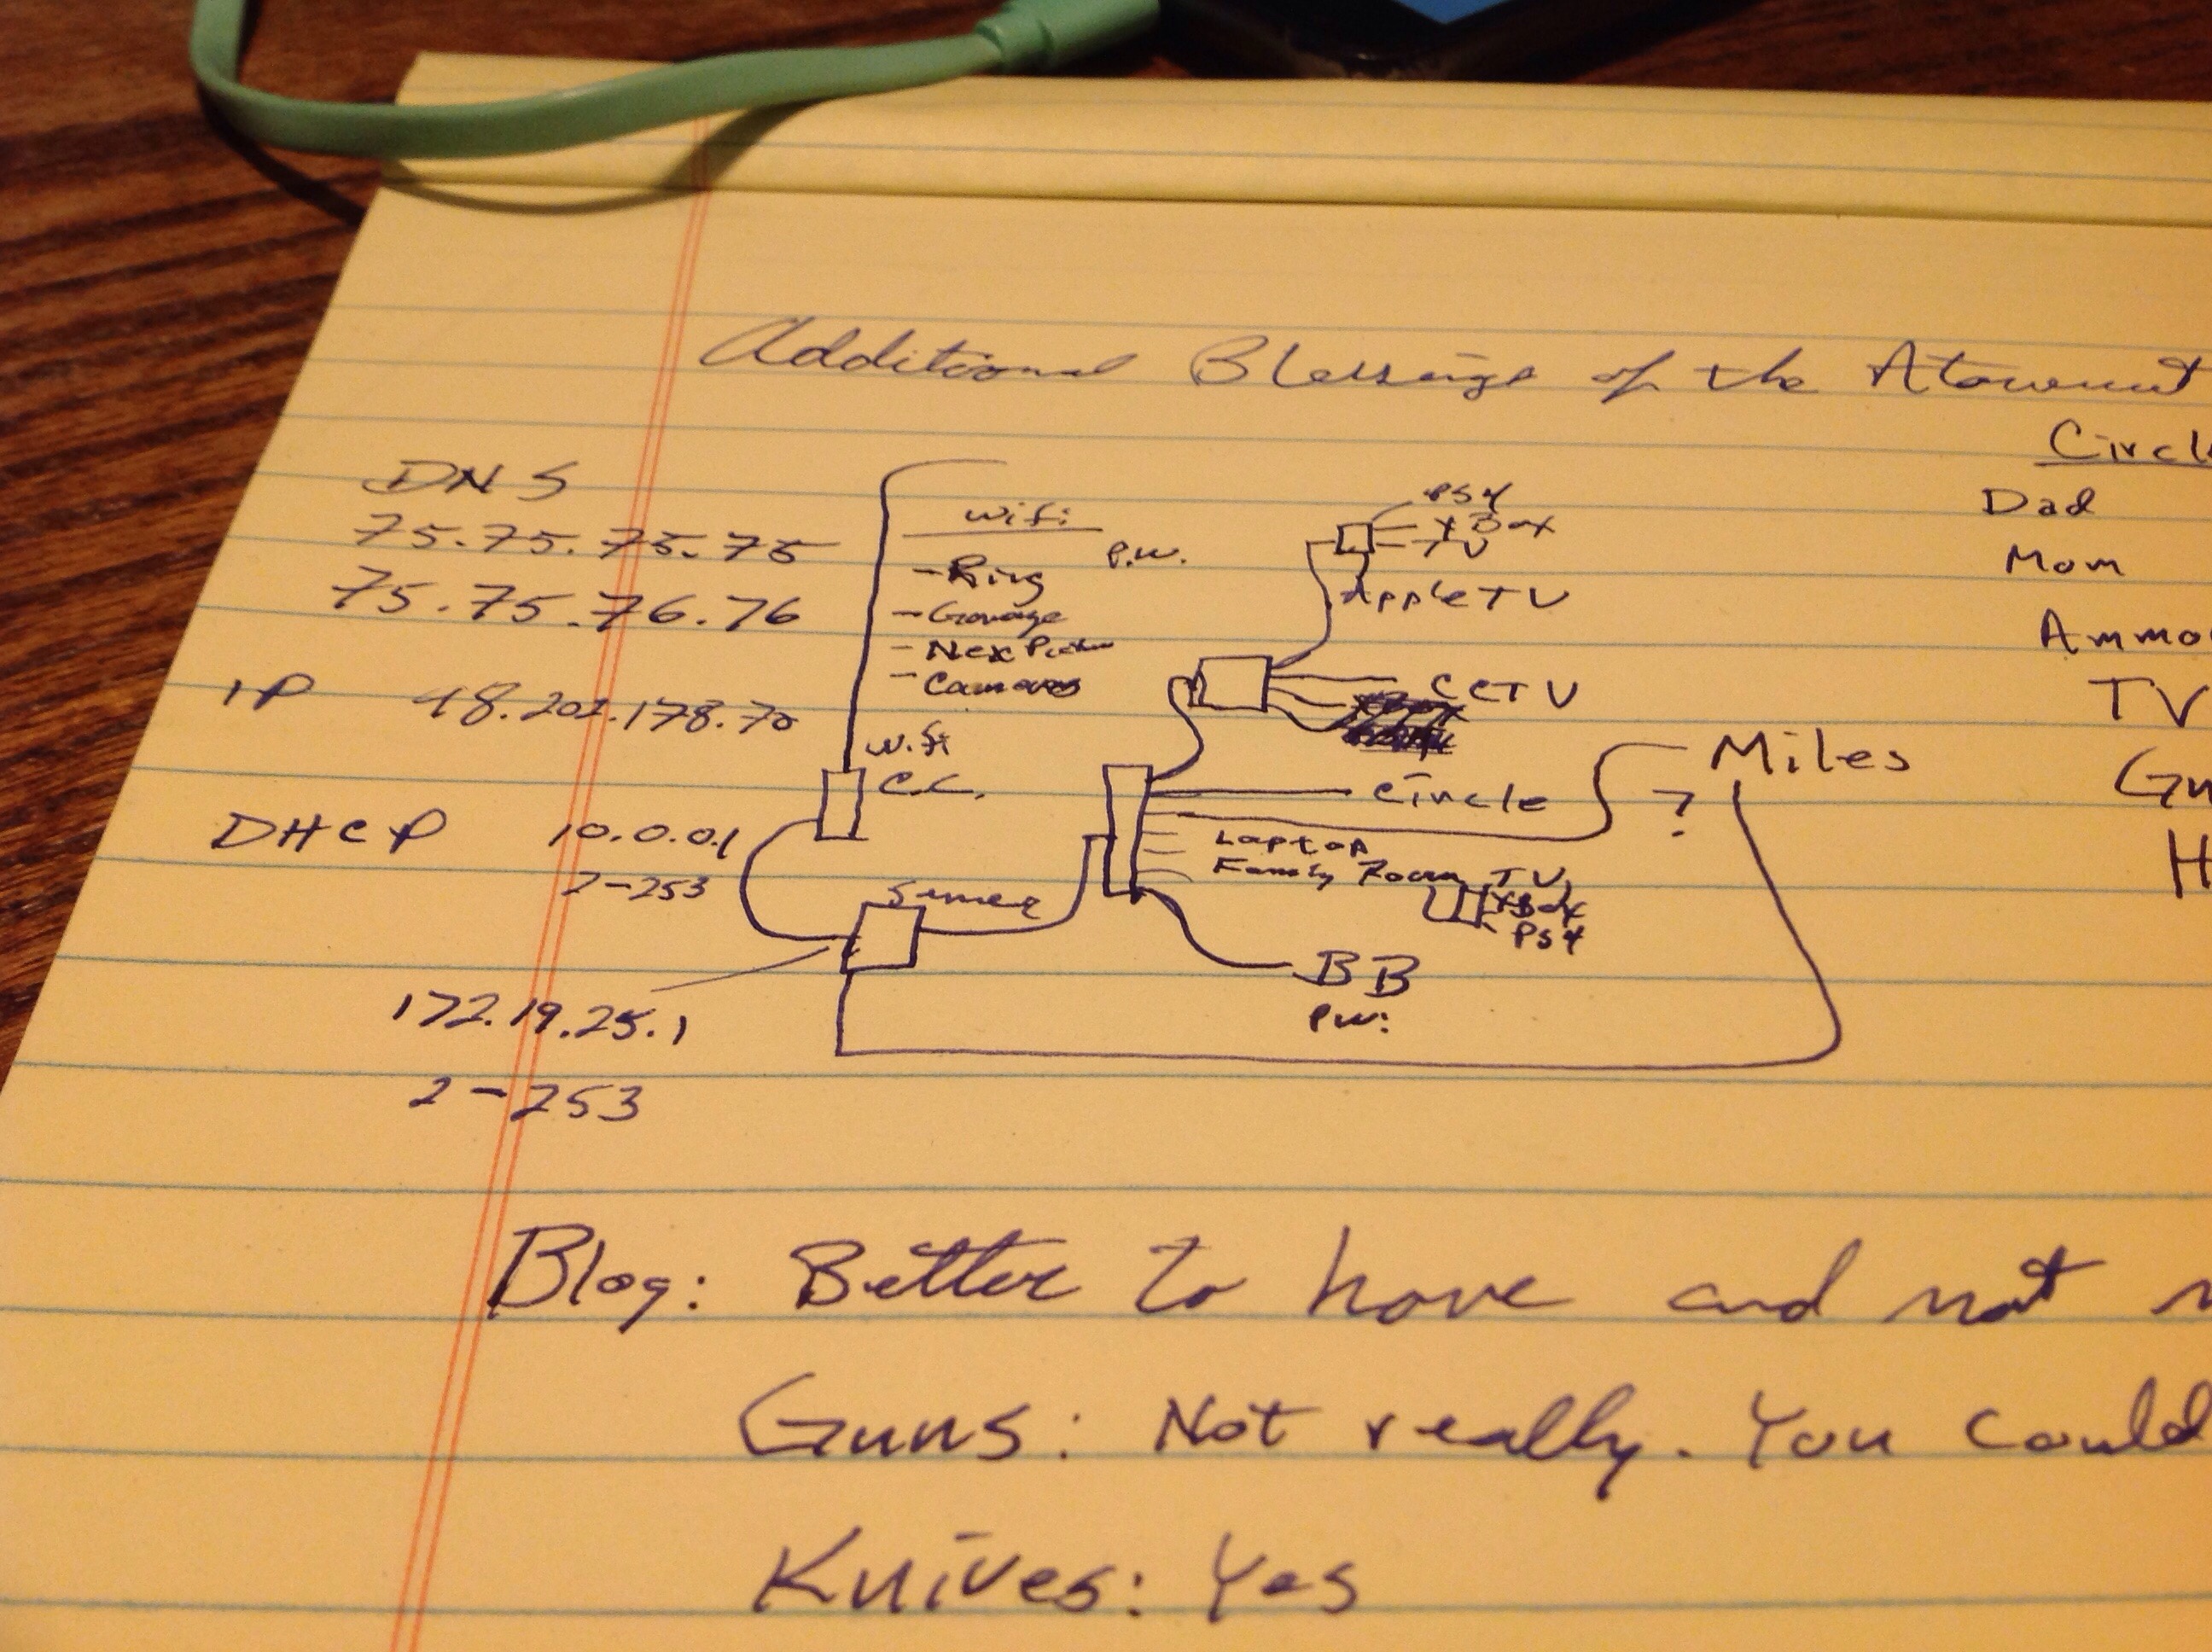 Additional Blessings of the Atonement
Circl
DNS
75.75.75.75
75.75.76.76
IP 48.202.178.70
DHCP 10.0.0.1
2-253
172.19.25.1
2-253
Wifi
P.W.
- Ring
- Garage
-
- Cameras
Wifi
C.C.
PS4
XBox
TV
Apple TV
CCTV
Circle
Miles
?
Laptop
Family Room TV
XBox
PS4
BB
PW:
Dad
Mom
Ammo
TV
Gu
H
Blog: Better to have and not n
Guns: Not really. You could
Knives: Yes